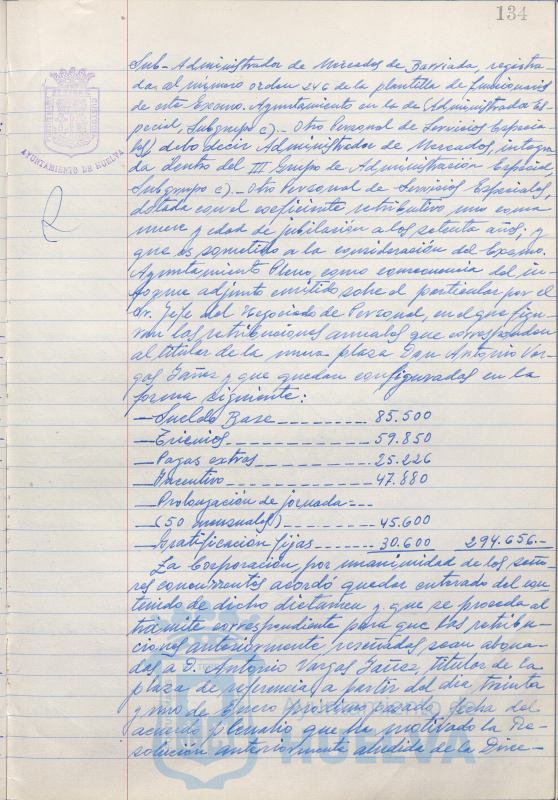 134
AYUNTAMIENTO DE HUELVA
Sub-Administrador de Mercados de Barriada, registra-
da al número orden 246 de la plantilla de funcionarios
de este Excmo. Ayuntamiento en la de (Administración Es-
pecial, Subgrupo c).- Otro Personal de Servicios Especia-
les) debe decir Administrador de Mercados, integra-
da dentro del III Grupo de Administración Especial,
Subgrupo c).- Otro Personal de Servicios Especiales,
dotada con el coeficiente retributivo uno coma
nueve y edad de jubilación a los setenta años; y
que es sometido a la consideración del Excmo.
Ayuntamiento Pleno, como consecuencia del in-
forme adjunto emitido sobre el particular por el
Sr. Jefe del Negociado de Personal, en el que figu-
ran las retribuciones anuales que corresponden
al titular de la nueva plaza Don Antonio Var-
gas Gáñez y que quedan configuradas en la
forma siguiente:
- Sueldo Base --------- 85.500
- Trienios ------------ 59.850
- Pagas extras -------- 25.226
- Incentivo ----------- 47.880
- Prolongación de jornada---
- (50 mensuales) ------ 45.600
- Gratificación fijas ------ 30.600 294.656.-
La Corporación, por unanimidad de los seño-
res concurrentes acordó quedar enterado del con-
tenido de dicho dictamen y que se proceda al
trámite correspondiente para que las retribu-
ciones anteriormente reseñadas sean abona-
das a D. Antonio Vargas Gáñez, titular de la
plaza de referencia a partir del día treinta
y uno de Enero próximo pasado, fecha del
acuerdo plenario que ha motivado la Re-
solución anteriormente aludida de la Direc-
HUELVA